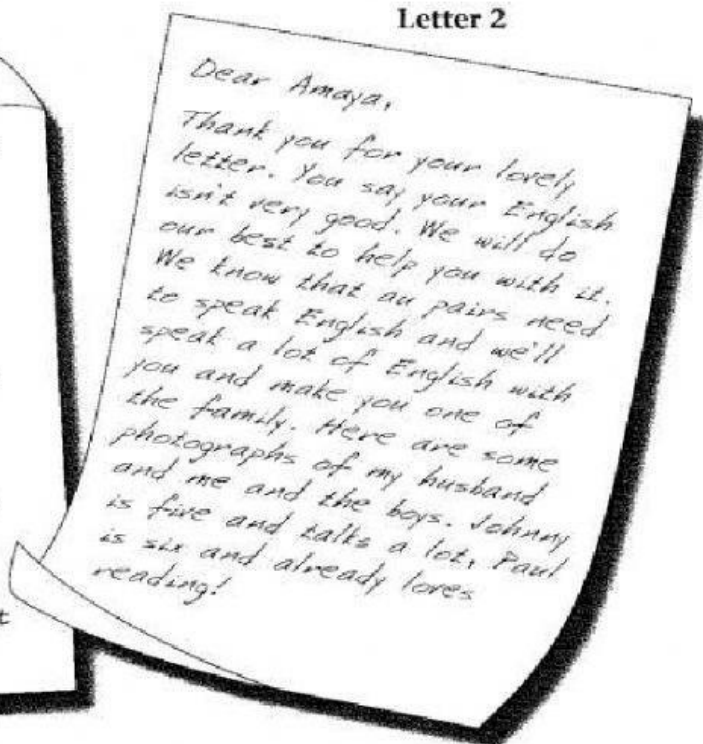 Letter 2
Dear Amaya,
Thank you for your lovely
letter. You say your English
isn't very good. We will do
our best to help you with it.
We know that au pairs need
to speak English and we'll
speak a lot of English with
you and make you one of
the family. Here are some
photographs of my husband
and me and the boys. Johnny
is five and talks a lot, Paul
is six and already loves
reading!
t